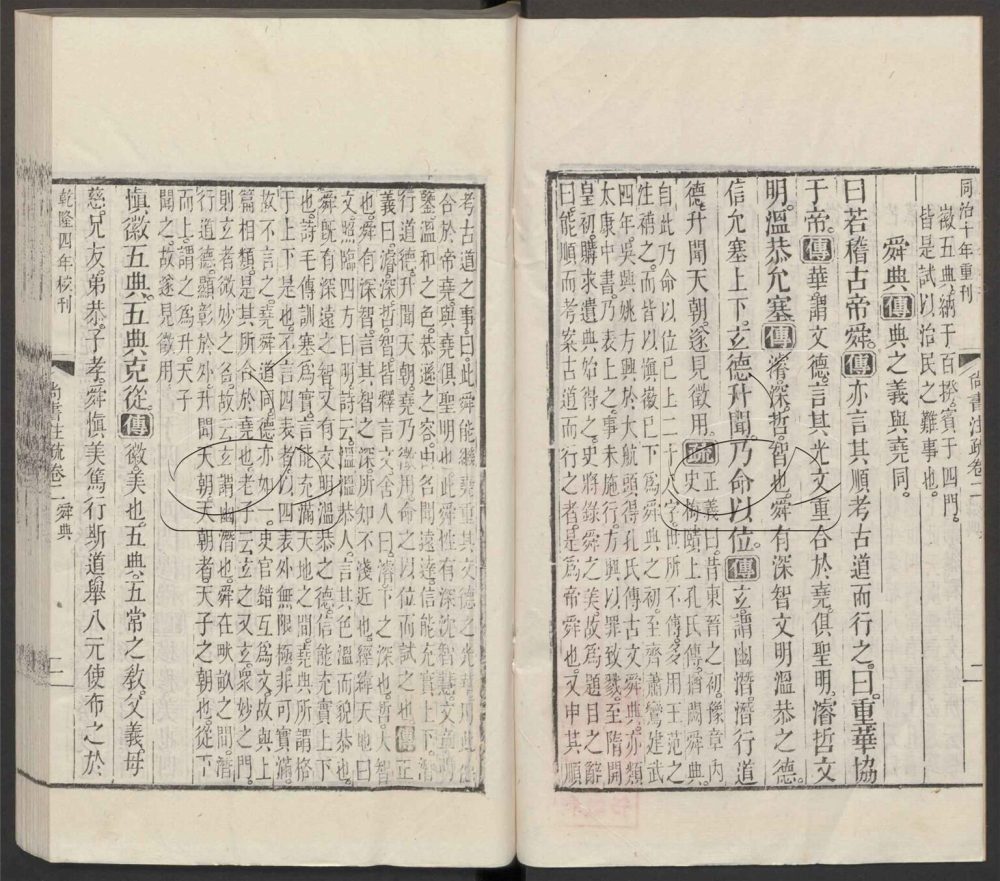 同治十年重刊
尚書注疏卷二
二
徽五典納于百揆賓于四門
皆是試以治民之難事也
舜典傳典之義與堯同
曰若稽古帝舜傳亦言其順考古道而行之曰重華協
于帝傳華謂文德言其光文重合於堯俱聖明濬哲文
明溫恭允塞傳濬深哲智也舜有深智文明溫恭之德
信允塞上下玄德升聞乃命以位傳玄謂幽潛潛行道
德升聞天朝遂見徵用疏正義曰昔東晉之初豫章內
史梅賾上孔氏傳猶闕舜典
自此乃命以位已上二十八字世所不傳多用王范之
注補之而皆以慎徽已下爲舜典之初至齊蕭鸞建武
四年吳興姚方興於大航頭得孔氏傳古文舜典亦類
太康中書乃表上之事未施行方興以罪致戮至隋開
皇初購求遺典始得之史將錄舜之美故爲題目之辭
曰能順而考案古道而行之者是爲帝舜也又申其順
考古道之事曰此舜能繼堯重其文德之光華用此德
合於帝堯與堯俱聖明也此舜性有深沈智慧文章明
鑒溫和之色恭遜之容由名聞遠達信能充實上下潛
行道德升聞天朝堯乃徵用命之以位而試之也傳正
義曰濬深哲智皆釋言文舍人曰濬下之深也哲大智
也舜有深智言其智之深所知不淺近也經緯天地曰
文照臨四方曰明詩云溫溫恭人言其色溫而貌恭也
舜既有深遠之智又有文明溫恭之德信能充實上下
也詩毛傳訓塞爲實言能充滿天地之間堯典所謂格
于上下是也不言四表者以四表外無限極非可實滿
故不言之堯舜道同德亦如一史官錯互爲文故與上
篇相類是其所合於堯也老子云玄之又玄衆妙之門
則玄者微妙之名故云玄謂幽潛也舜在畎畝之間潛
行道德顯彰於外升聞天朝天朝者天子之朝也從下
而上謂之爲升天子
聞之故遂見徵用
慎徽五典五典克從傳徽美也五典五常之敎父義母
慈兄友弟恭子孝舜慎美篤行斯道舉八元使布之於
乾隆四年校刊
尚書注疏卷二 舜典
二